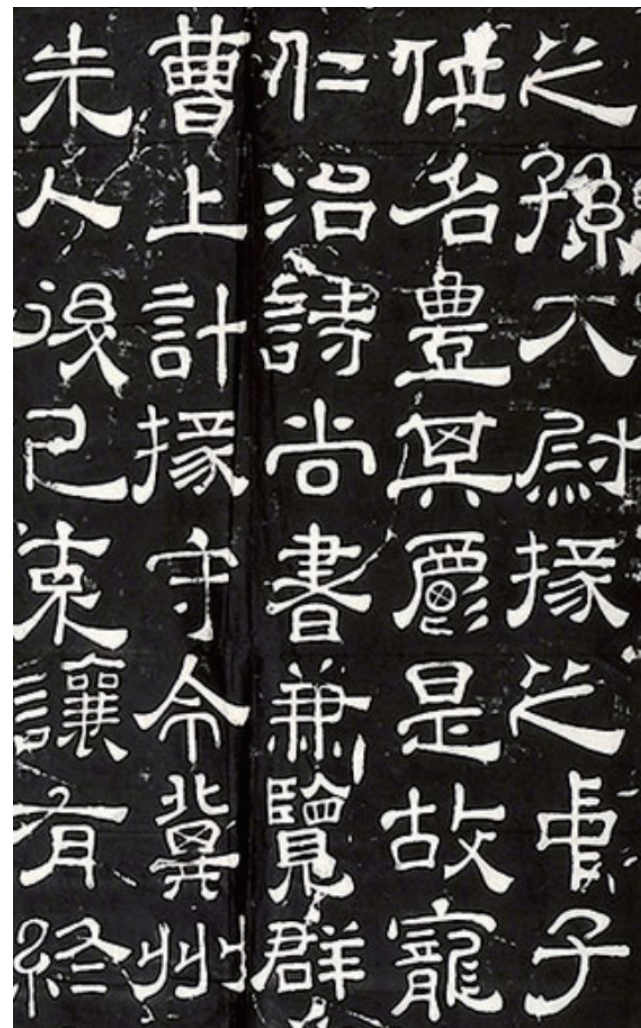 之孫大尉掾之中子
位名豐其爵是故寵
仁治詩尚書兼覽群
曹上計掾守令冀州
先人後己克讓有終